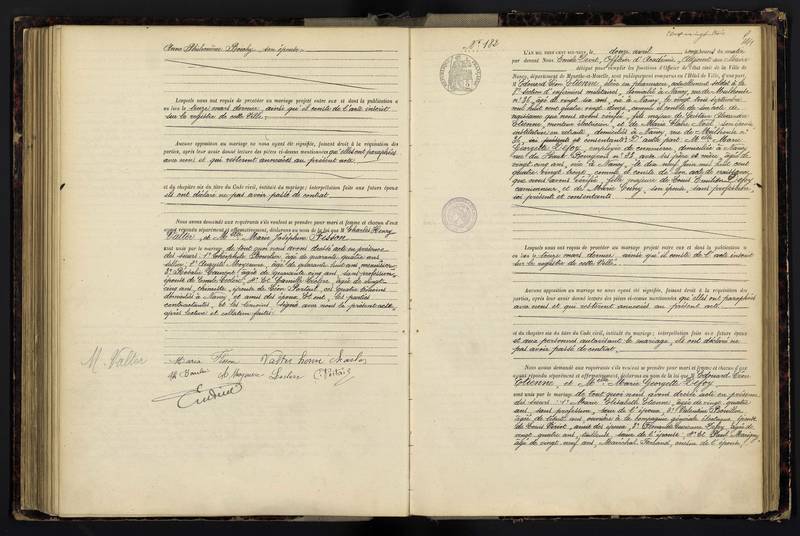 Anne Philomène Bouchy son épouse
Lesquels nous ont requis de procéder au mariage projeté entre eux et dont la publication a
eu lieu le onze mars dernier, ainsi qu'il conste de l'acte inscrit
sur le registre de cette Ville.
Aucune opposition au mariage ne nous ayant été signifiée, faisant droit à la réquisition des
parties, après leur avoir donné lecture des pièces ci-dessus mentionnées qu'elles ont paraphées
avec nous et qui resteront annexées au présent acte
et du chapitre six du titre du Code civil, intitulé du mariage; interpellation faite aux futurs époux
ils ont déclaré ne pas avoir passé de contrat.
Nous avons demandé aux requérants s'ils veulent se prendre pour mari et femme et chacun d'eux
ayant répondu séparément et affirmativement, déclarons au nom de la loi que M. Charles Henry
Valter, et Melle Marie Joséphine Fisson
sont unis par le mariage, de tout quoi nous avons dressé acte en présence
des sieurs: 1° Théophile Boucher, âgé de quarante quatre ans,
sellier, 2° Auguste Moyenne, âgé de quarante huit ans, menuisier,
3° Rosalie âgée de quarante cinq ans, sans profession,
épouse de Emile Leclerc, 4° et Camille âgée de vingt
cinq ans, épouse de Léon ces quatre témoins
domiciliés à Nancy, et amis des époux. Et ont, les parties
contractantes, et les témoins, signé avec nous le présent acte,
après lecture et collation faites.
M. Valter
Maria Fisson Valter henri charles
Leclerc
N° 182
L'AN MIL NEUF CENT SIX-NEUF, le douze avril
par devant Nous Adjoint au Maire
délégué pour remplir les fonctions d'Officier de l'état civil de la Ville de
Nancy, département de Meurthe-et-Moselle, sont publiquement comparus en l'Hôtel de Ville, d'une part,
M. Edouard Léon Etienne, élève en pharmacie, actuellement soldat à la
section d'infirmiers militaires, domicilié à Nancy, rue de Mulhouse
n° 36, âgé de vingt six ans, né à Nancy, le vingt trois septembre
mil huit cent quatre vingt deux, comme il conste de son acte de
naissance que nous avons vérifié, fils majeur de Gustave Alexandre
Etienne, et de Marie Claire Noël, son épouse
institutrice en retraite, domiciliés à Nancy, rue de Mulhouse n°
36, ici présents et consentants. D'autre part: Melle Marie
Georgette Lefoy, employée de commerce, domiciliée à Nancy
rue du Haut Bourgeois n° 33, avec ses père et mère, âgée de
vingt cinq ans, née à Nancy, le dix neuf juin mil huit cent
quatre vingt trois, comme il conste de son acte de naissance
que nous avons vérifié, fille majeure de Louis Emilien Lefoy
camionneur, et de Marie son épouse, sans profession,
ici présents et consentants.
Lesquels nous ont requis de procéder au mariage projeté entre eux et dont la publication a
eu lieu le onze mars dernier, ainsi qu'il conste de l'acte inscrit
sur le registre de cette Ville.
Aucune opposition au mariage ne nous ayant été signifiée, faisant droit à la réquisition des
parties, après leur avoir donné lecture des pièces ci-dessus mentionnées qu'elles ont paraphées
avec nous et qui resteront annexées au présent acte.
et du chapitre six du titre du Code civil, intitulé du mariage; interpellation faite aux futurs époux
et aux personnes autorisant le mariage, ils ont déclaré ne
pas avoir passé de contrat.
Nous avons demandé aux requérants s'ils veulent se prendre pour mari et femme et chacun d'eux
ayant répondu séparément et affirmativement, déclarons au nom de la loi que M. Edouard Léon
Etienne, et Melle Marie Georgette Lefoy,
sont unis par le mariage, de tout quoi nous avons dressé acte en présence
des sieurs: 1° Marie Elisabeth Etienne, âgée de vingt quatre
ans, sans profession, sœur de l'époux, 2° Valentine
âgée de trente ans, ouvrière à la compagnie générale électrique, épouse
de Louis amie des époux, 3° Lefoy, âgée de
vingt quatre ans, tailleuse, sœur de l'épouse, 4° et Paul
âgé de vingt neuf ans, Maréchal ferrant, cousin de l'épouse,